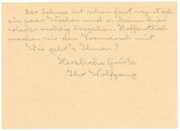 Der Schnee ist schon fast weg. Noch
ein paar Wochen und es kann hier
wieder richtig losgehen. Hoffentlich
machen wir den Sommer mit.
Wie geht's Ihnen?
Herzliche Grüße
Ihr Wolfgang